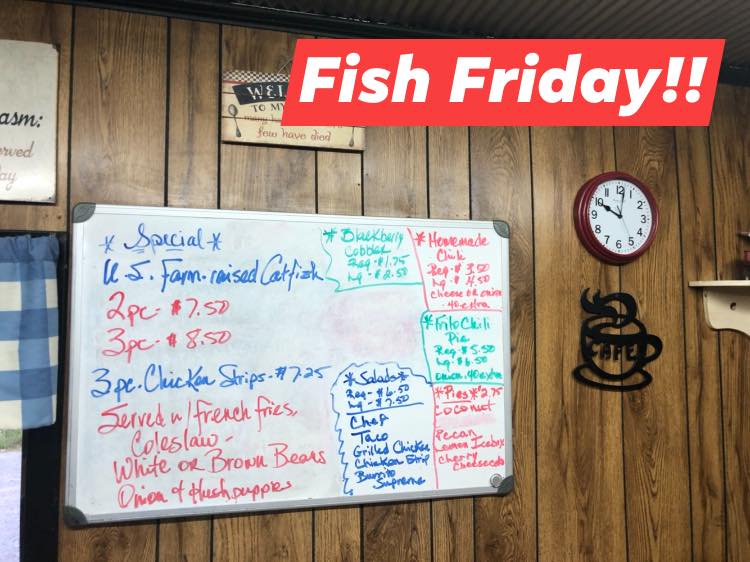 Fish Friday!!
WEL
TO MY
many h
few have died
asm:
erved
ay
* Special *
U.S. Farm-raised Catfish
2pc - $7.50
3pc - $8.50
3pc. Chicken Strips - $7.25
Served w/ french fries,
Coleslaw -
White or Brown Beans
Onion & Hushpuppies
* Blackberry
Cobbler
Reg - $1.75
Lg - $2.50
* Salads *
Reg - $6.50
Lg - $7.50
Chef
Taco
Grilled Chicken
Chicken Strip
Burrito
Supreme
* Homemade
Chili
Reg - $3.50
Lg - $4.50
cheese or onion
.40 extra
* Frito Chili
Pie
Reg - $5.50
Lg - $6.50
onion .40 extra
* Pies * $2.75
Coconut
Pecan
Lemon Icebox
Cherry
Cheesecake
CAFE